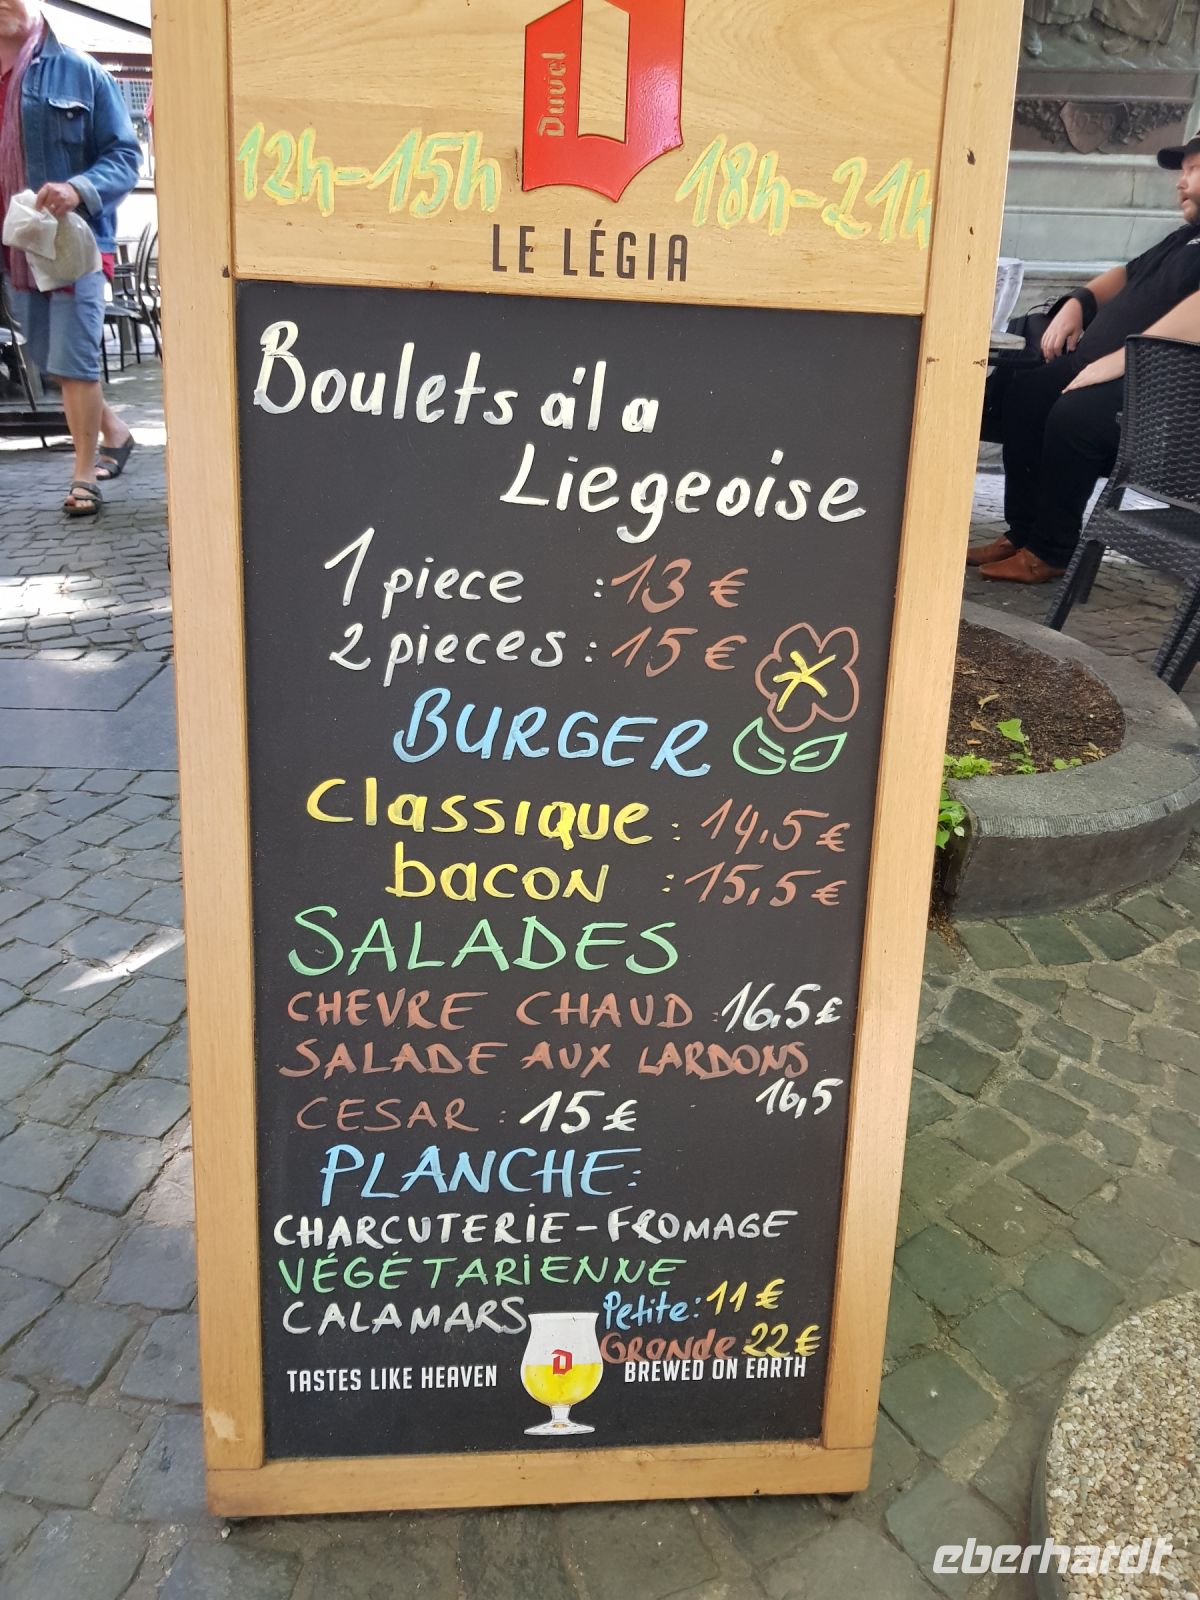 Duvel
12h-15h 18h-21h
LE LÉGIA
Boulets à la
Liegeoise
1 piece : 13 €
2 pieces : 15 €
BURGER
Classique : 14,5 €
bacon : 15,5 €
SALADES
CHEVRE CHAUD : 16,5 €
SALADE AUX LARDONS
16,5
CESAR : 15 €
PLANCHE :
CHARCUTERIE - FROMAGE
VÉGÉTARIENNE
CALAMARS Petite : 11 €
Grande : 22 €
TASTES LIKE HEAVEN D BREWED ON EARTH
eberhardt